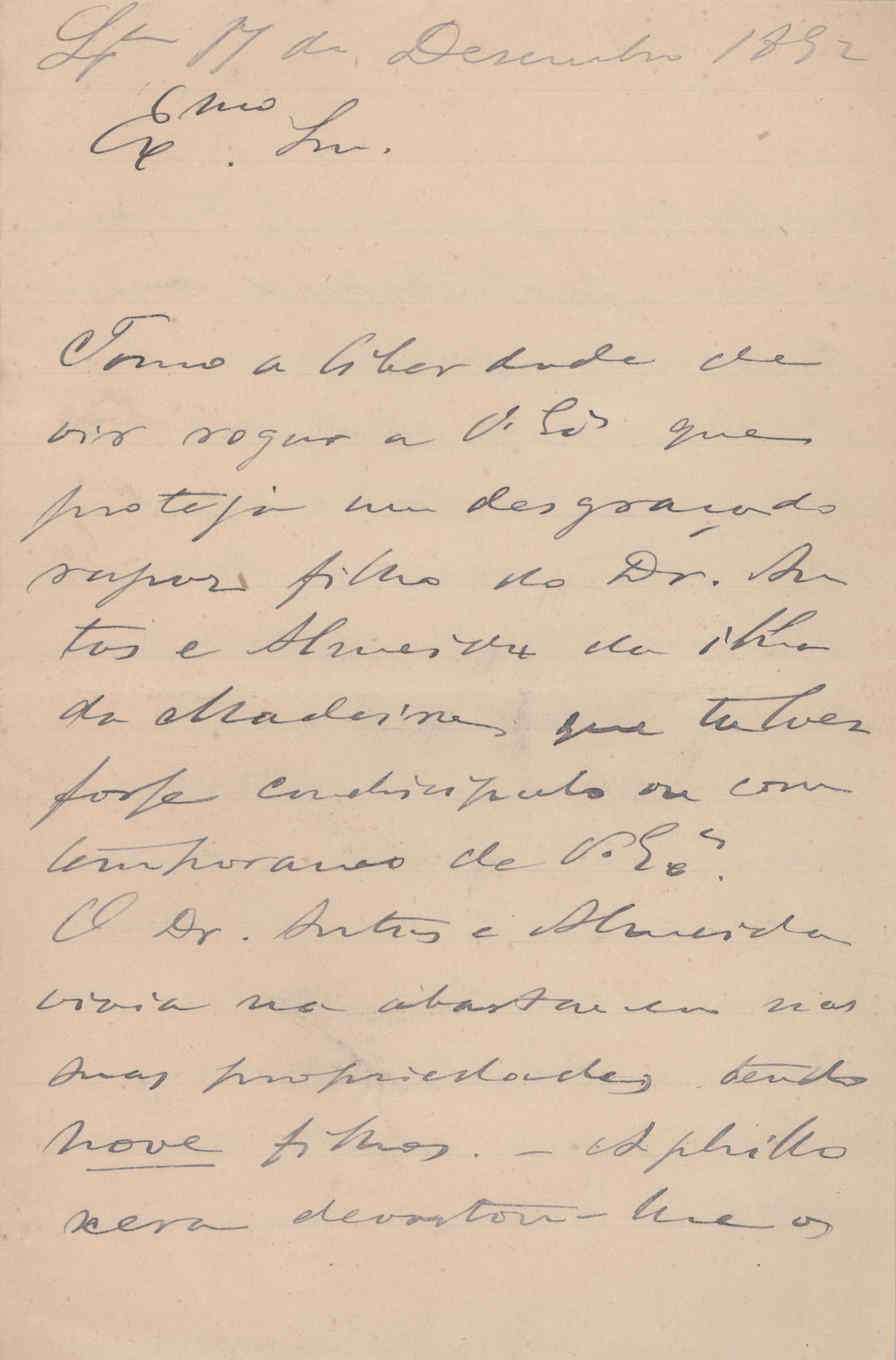 Lxa 17 de Desembro 1892
Exmo. Snr.
Tomo a liberdade de
vir rogar a V. Exa que
proteja um desgraçado
rapaz filho do Dr. An
tas e Almeida da ilha
da Madeira, que talvez
fosse condiscipulo ou con
temporaneo de V. Exa.
O Dr. Antas e Almeida
vivia na abastança nas
suas propriedades tendo
nove filhos. – A phillo
xera devastou-lhe os